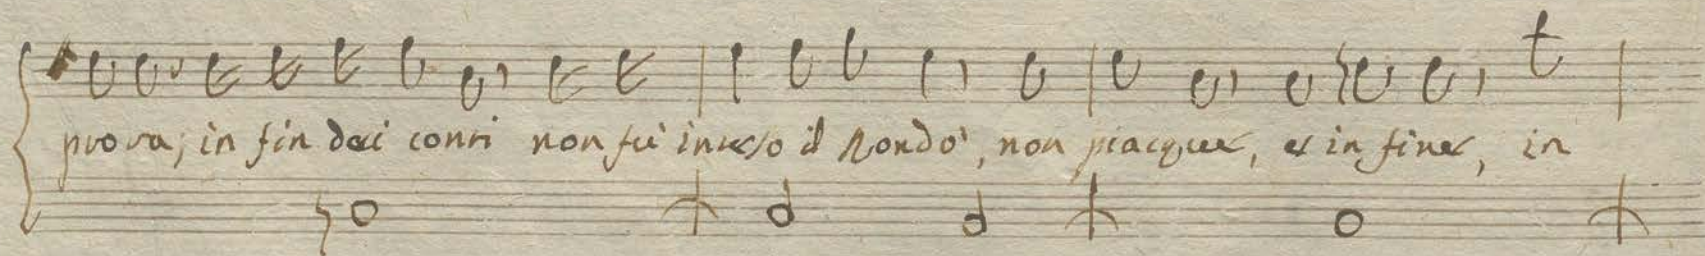 prova; in fin dei conti non fù inteso il Rondò, non piacque, e in fine, in